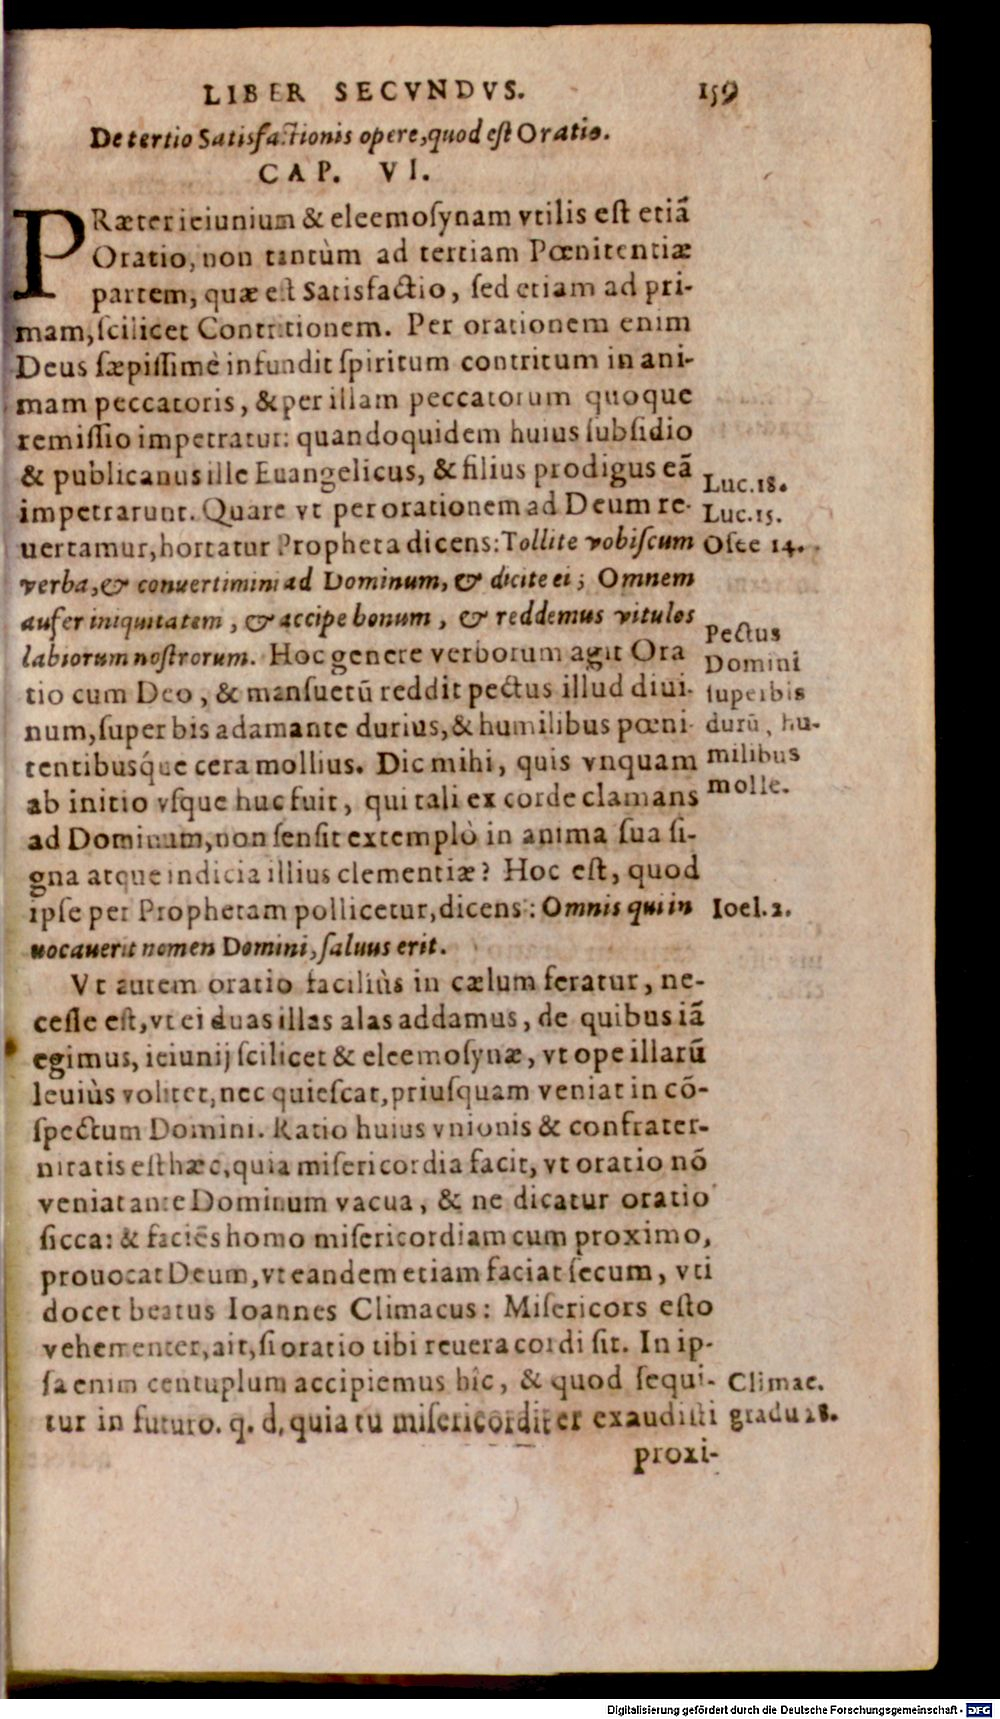 LIBER SECVNDVS. 159
De tertio Satisfactionis opere, quod est Oratio.
CAP. VI.
PRæter ieiunium & eleemosynam vtilis est etiã
Oratio, non tantùm ad tertiam Pœnitentiæ
partem, quæ est Satisfactio, sed etiam ad pri-
mam, scilicet Contritionem. Per orationem enim
Deus sæpissimè infundit spiritum contritum in ani-
mam peccatoris, & per illam peccatorum quoque
remissio impetratur: quandoquidem huius subsidio
& publicanus ille Euangelicus, & filius prodigus eã
impetrarunt. Quare vt per orationem ad Deum re-
uertamur, hortatur Propheta dicens: Tollite vobiscum
verba, & conuertimini ad Dominum, & dicite ei; Omnem
aufer iniquitatem, & accipe bonum, & reddemus vitulos
labiorum nostrorum. Hoc genere verborum agit Ora
tio cum Deo, & mansuetũ reddit pectus illud diui-
num, superbis adamante durius, & humilibus pœni-
tentibusq́ue cera mollius. Dic mihi, quis vnquam
ab initio vsque huc fuit, qui tali ex corde clamans
ad Dominum, non sensit extemplò in anima sua si-
gna atque indicia illius clementiæ? Hoc est, quod
ipse per Prophetam pollicetur, dicens: Omnis qui in
uocauerit nomen Domini, saluus erit.
Vt autem oratio faciliùs in cælum feratur, ne-
cesse est, vt ei duas illas alas addamus, de quibus iã
egimus, ieiunij scilicet & eleemosynæ, vt ope illarũ
leuiùs volitet, nec quiescat, priusquam veniat in cõ-
spectum Domini. Ratio huius vnionis & confrater-
nitatis est hæc, quia misericordia facit, vt oratio nõ
veniat ante Dominum vacua, & ne dicatur oratio
sicca: & faciẽs homo misericordiam cum proximo,
prouocat Deum, vt eandem etiam faciat secum, vti
docet beatus Ioannes Climacus: Misericors esto
vehementer, ait, si oratio tibi reuera cordi sit. In ip-
sa enim centuplum accipiemus hîc, & quod sequi-
tur in futuro. q. d. quia tu misericorditer exaudisti
proxi-
Luc. 18.
Luc. 15.
Osee 14.
Pectus
Domini
superbis
durũ, hu-
milibus
molle.
Ioel. 2.
Climac.
gradu 28.
Digitalisierung gefördert durch die Deutsche Forschungsgemeinschaft - DFG